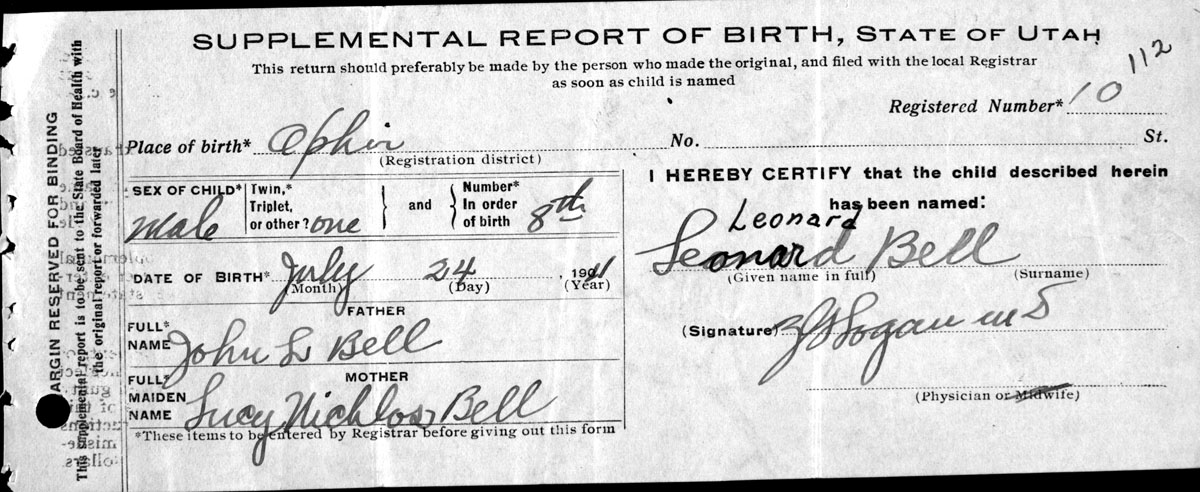 SUPPLEMENTAL REPORT OF BIRTH, STATE OF UTAH
This return should preferably be made by the person who made the original, and filed with the local Registrar
as soon as child is named
112
Registered Number* 10
Place of birth* Ophir No. St.
(Registration district)
SEX OF CHILD* Male
Twin,* Triplet, or other? one } and { Number* In order of birth 8th
DATE OF BIRTH* July 24, 1911
(Month) (Day) (Year)
FATHER
FULL* NAME John L Bell
MOTHER
FULL* MAIDEN NAME Lucy Nichlos Bell
*These items to be entered by Registrar before giving out this form
I HEREBY CERTIFY that the child described herein
has been named:
Leonard
Leonard Bell
(Given name in full) (Surname)
(Signature) Logan
(Physician or Midwife)
MARGIN RESERVED FOR BINDING
This supplemental report is to be sent to the State Board of Health with
the original report or forwarded later